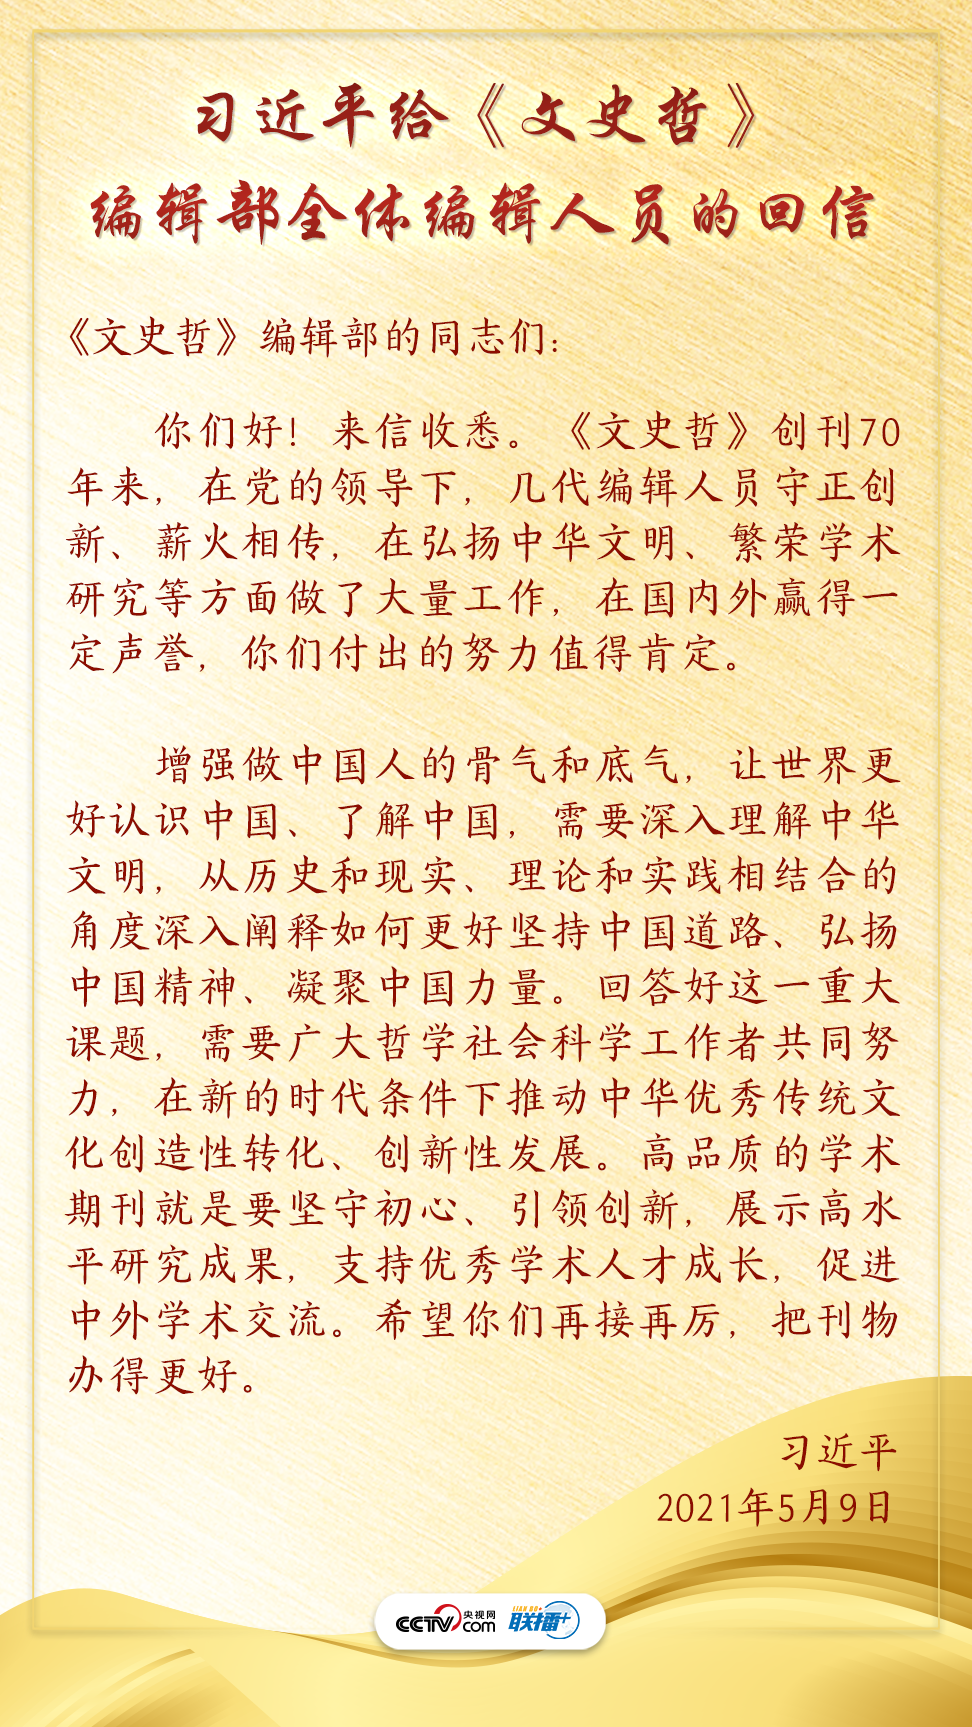 习近平给《文史哲》
编辑部全体编辑人员的回信
《文史哲》编辑部的同志们：
你们好！来信收悉。《文史哲》创刊70
年来，在党的领导下，几代编辑人员守正创
新、薪火相传，在弘扬中华文明、繁荣学术
研究等方面做了大量工作，在国内外赢得一
定声誉，你们付出的努力值得肯定。
增强做中国人的骨气和底气，让世界更
好认识中国、了解中国，需要深入理解中华
文明，从历史和现实、理论和实践相结合的
角度深入阐释如何更好坚持中国道路、弘扬
中国精神、凝聚中国力量。回答好这一重大
课题，需要广大哲学社会科学工作者共同努
力，在新的时代条件下推动中华优秀传统文
化创造性转化、创新性发展。高品质的学术
期刊就是要坚守初心、引领创新，展示高水
平研究成果，支持优秀学术人才成长，促进
中外学术交流。希望你们再接再厉，把刊物
办得更好。
习近平
2021年5月9日
CCTV央视网.com LIAN BO+ 联播+